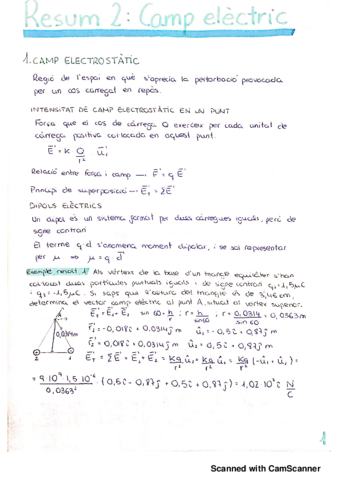 Resum 2: Camp elèctric
1. CAMP ELECTROSTÀTIC
Regió de l'espai en què s'aprecia la pertorbació provocada
per un cos carregat en repòs.
INTENSITAT DE CAMP ELECTROSTÀTIC EN UN PUNT
Força que el cos de càrrega Q exerceix per cada unitat de
càrrega positiva col·locada en aquest punt.
E⃗ = K Q/r² u⃗r
Relació entre força i camp — F⃗ = q E⃗
Principi de superposició — E⃗T = ΣE⃗
DIPOLS ELÈCTRICS
Un dipol és un sistema format per dues càrregues iguals, però de
signe contrari
El terme q·d s'anomena moment dipolar, i se sol representar
per μ ⇒ μ = q·d⃗
Exemple resolt 1/ Als vèrtexs de la base d'un triangle equilàter s'han
col·locat dues partícules puntuals iguals i de signe contrari q1 = 1,5μC
i q2 = -1,5μC. Si saps que l'altura del triangle és de 3,14 cm,
determina el vector camp elèctric al punt A, situat al vèrtex superior.
E⃗T = E⃗1 + E⃗2 sin 60 = h/r ; r = h/sin60 ; r = 0,0314/sin 60 = 0,0363m
r⃗1 = -0,018i + 0,0314j m û1 = -0,5i + 0,87j
r⃗2 = 0,018i + 0,0314j m û2 = 0,5i + 0,87j m
0,0314m
1
Scanned with CamScanner